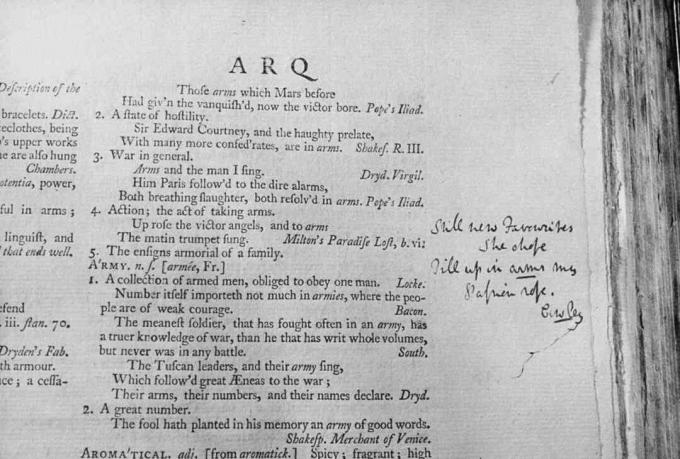 Description of the
bracelets. Dict.
eclothes, being
's upper works
e are also hung
Chambers.
otentia, power,
ful in arms;
linguist, and
that ends well.
efend
iii. stan. 70.
Dryden's Fab.
th armour.
ce; a cessa-
ARQ
Thoſe arms which Mars before
Had giv'n the vanquiſh'd, now the victor bore. Pope's Iliad.
2. A ſtate of hoſtility.
Sir Edward Courtney, and the haughty prelate,
With many more confed'rates, are in arms. Shakeſ. R. III.
3. War in general.
Arms and the man I ſing. Dryd. Virgil.
Him Paris follow'd to the dire alarms,
Both breathing ſlaughter, both reſolv'd in arms. Pope's Iliad.
4. Action; the act of taking arms.
Up roſe the victor angels, and to arms
The matin trumpet ſung. Milton's Paradiſe Loſt, b. vi.
5. The enſigns armorial of a family.
A'RMY. n. ſ. [armée, Fr.]
1. A collection of armed men, obliged to obey one man. Locke.
Number itſelf importeth not much in armies, where the peo-
ple are of weak courage. Bacon.
The meaneſt ſoldier, that has fought often in an army, has
a truer knowledge of war, than he that has writ whole volumes,
but never was in any battle. South.
The Tuſcan leaders, and their army ſing,
Which follow'd great Æneas to the war;
Their arms, their numbers, and their names declare. Dryd.
2. A great number.
The fool hath planted in his memory an army of good words.
Shakeſp. Merchant of Venice.
AROMA'TICAL. adj. [from aromatick.] Spicy; fragrant; high
Still new Favourites
She choſe
Till up in arms my
Paſsion roſe.
Cowley